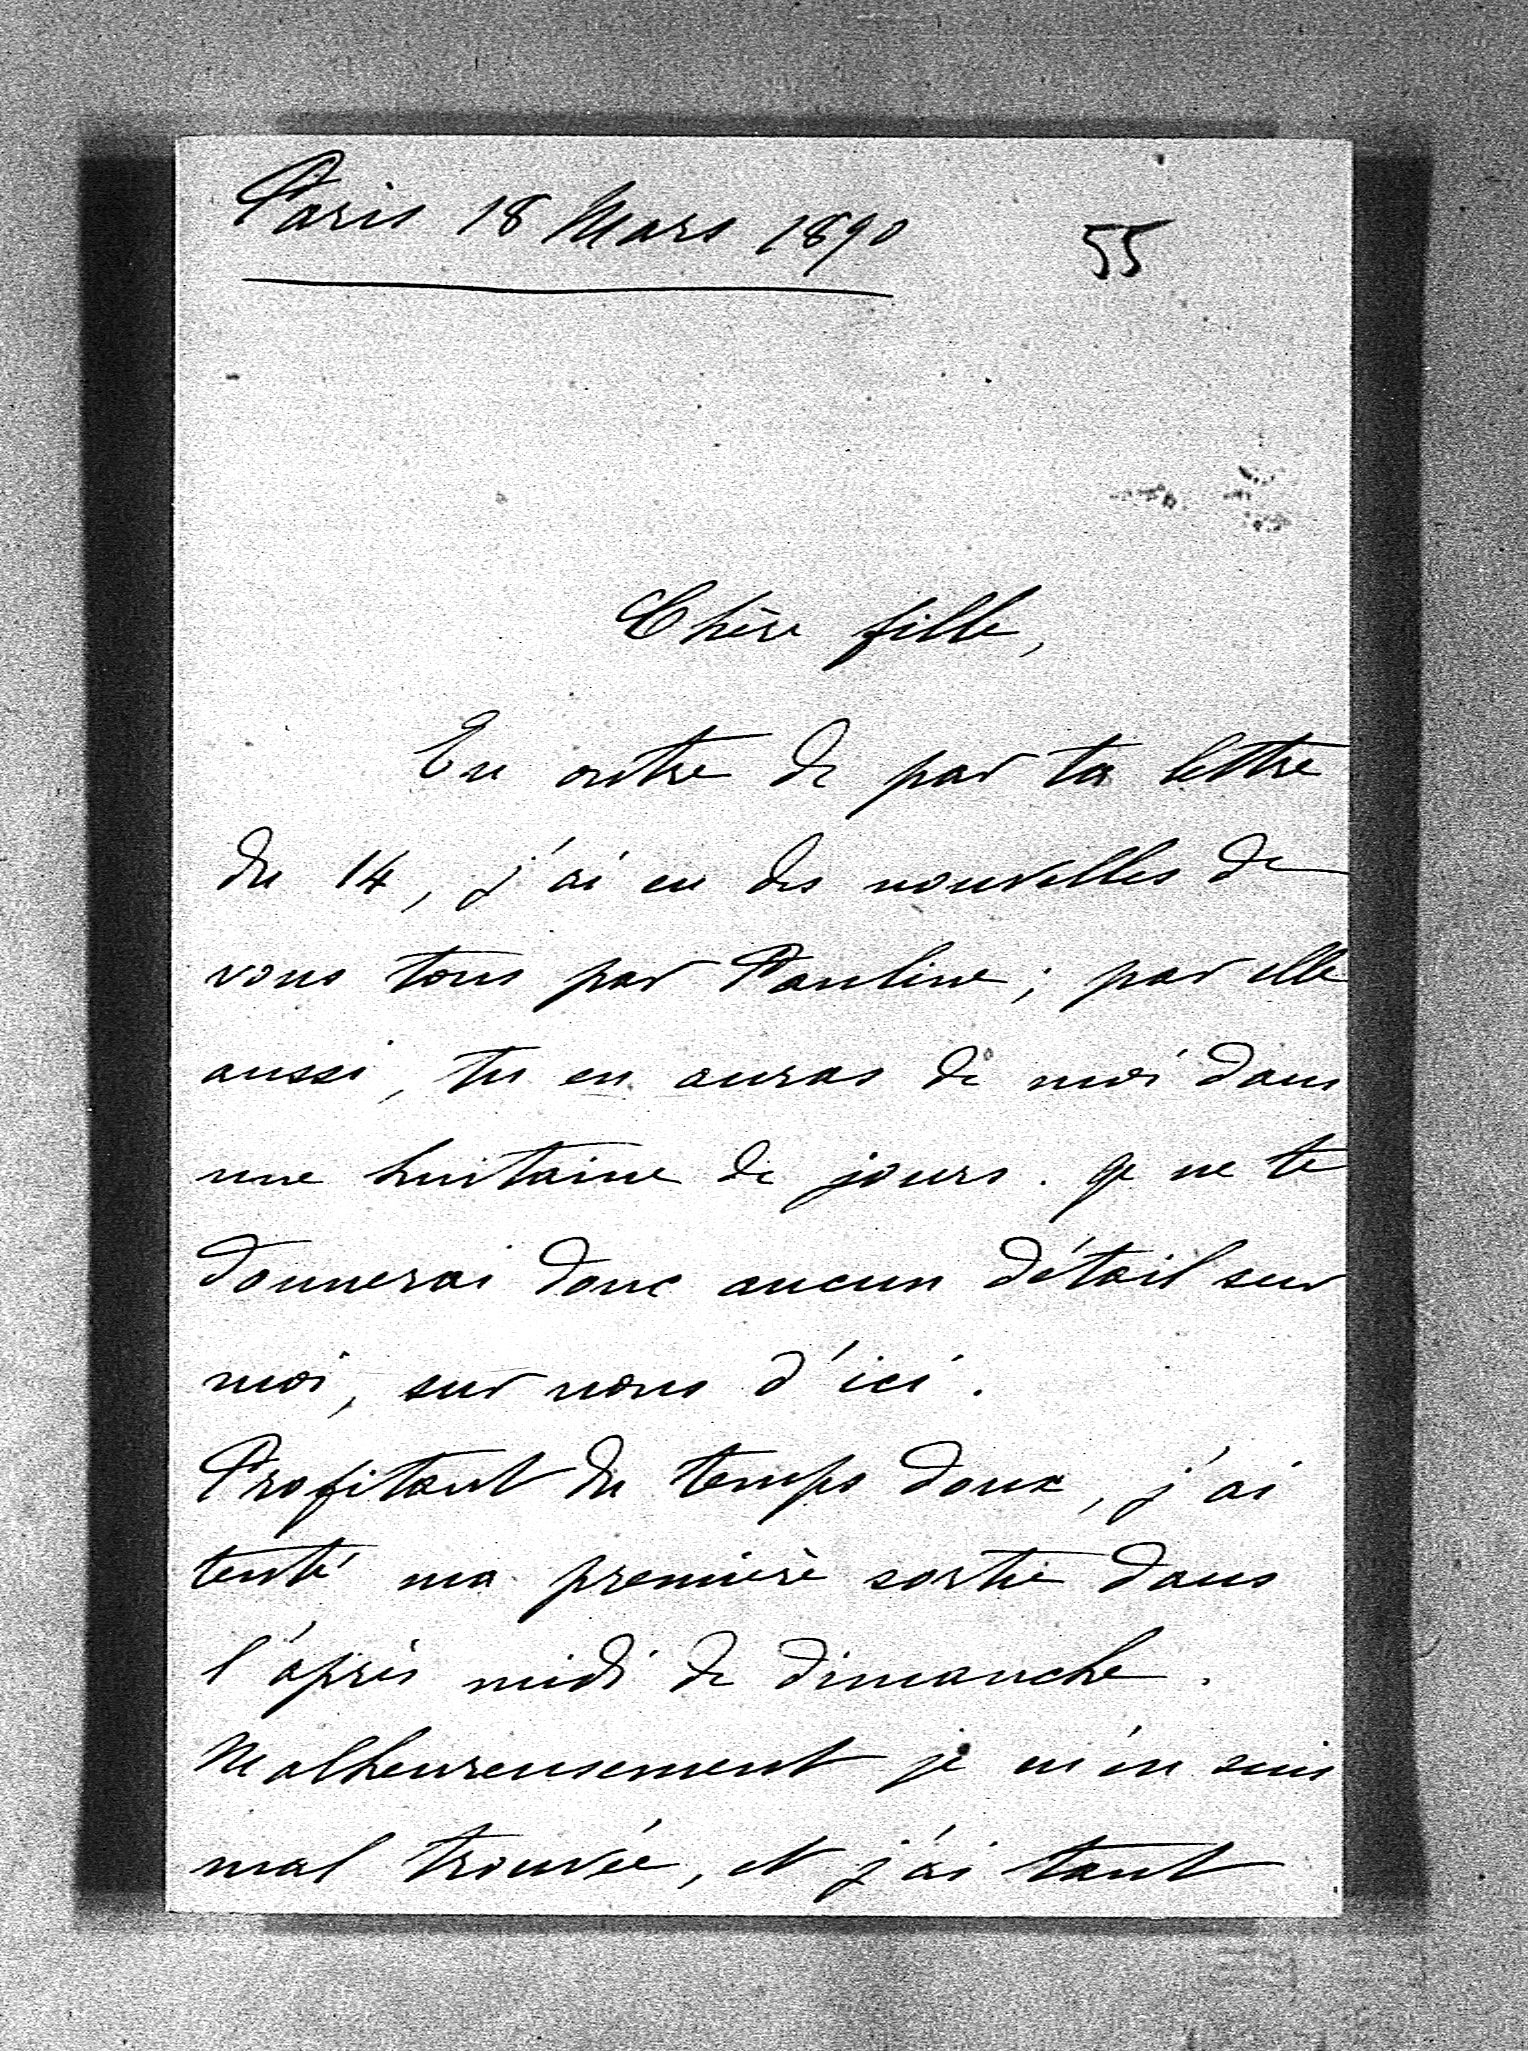 Paris 18 Mars 1890
55
Chère fille,
En outre de par ta lettre
du 14, j'ai eu des nouvelles de
vous tous par Pauline; par elle
aussi, tu en auras de moi dans
une huitaine de jours. Je ne te
donnerai donc aucun détail sur
moi, sur nous d'ici.
Profitant du temps doux, j'ai
tenté ma première sortie dans
l'après midi de dimanche.
Malheureusement je m'en suis
mal trouvée, et j'ai tant